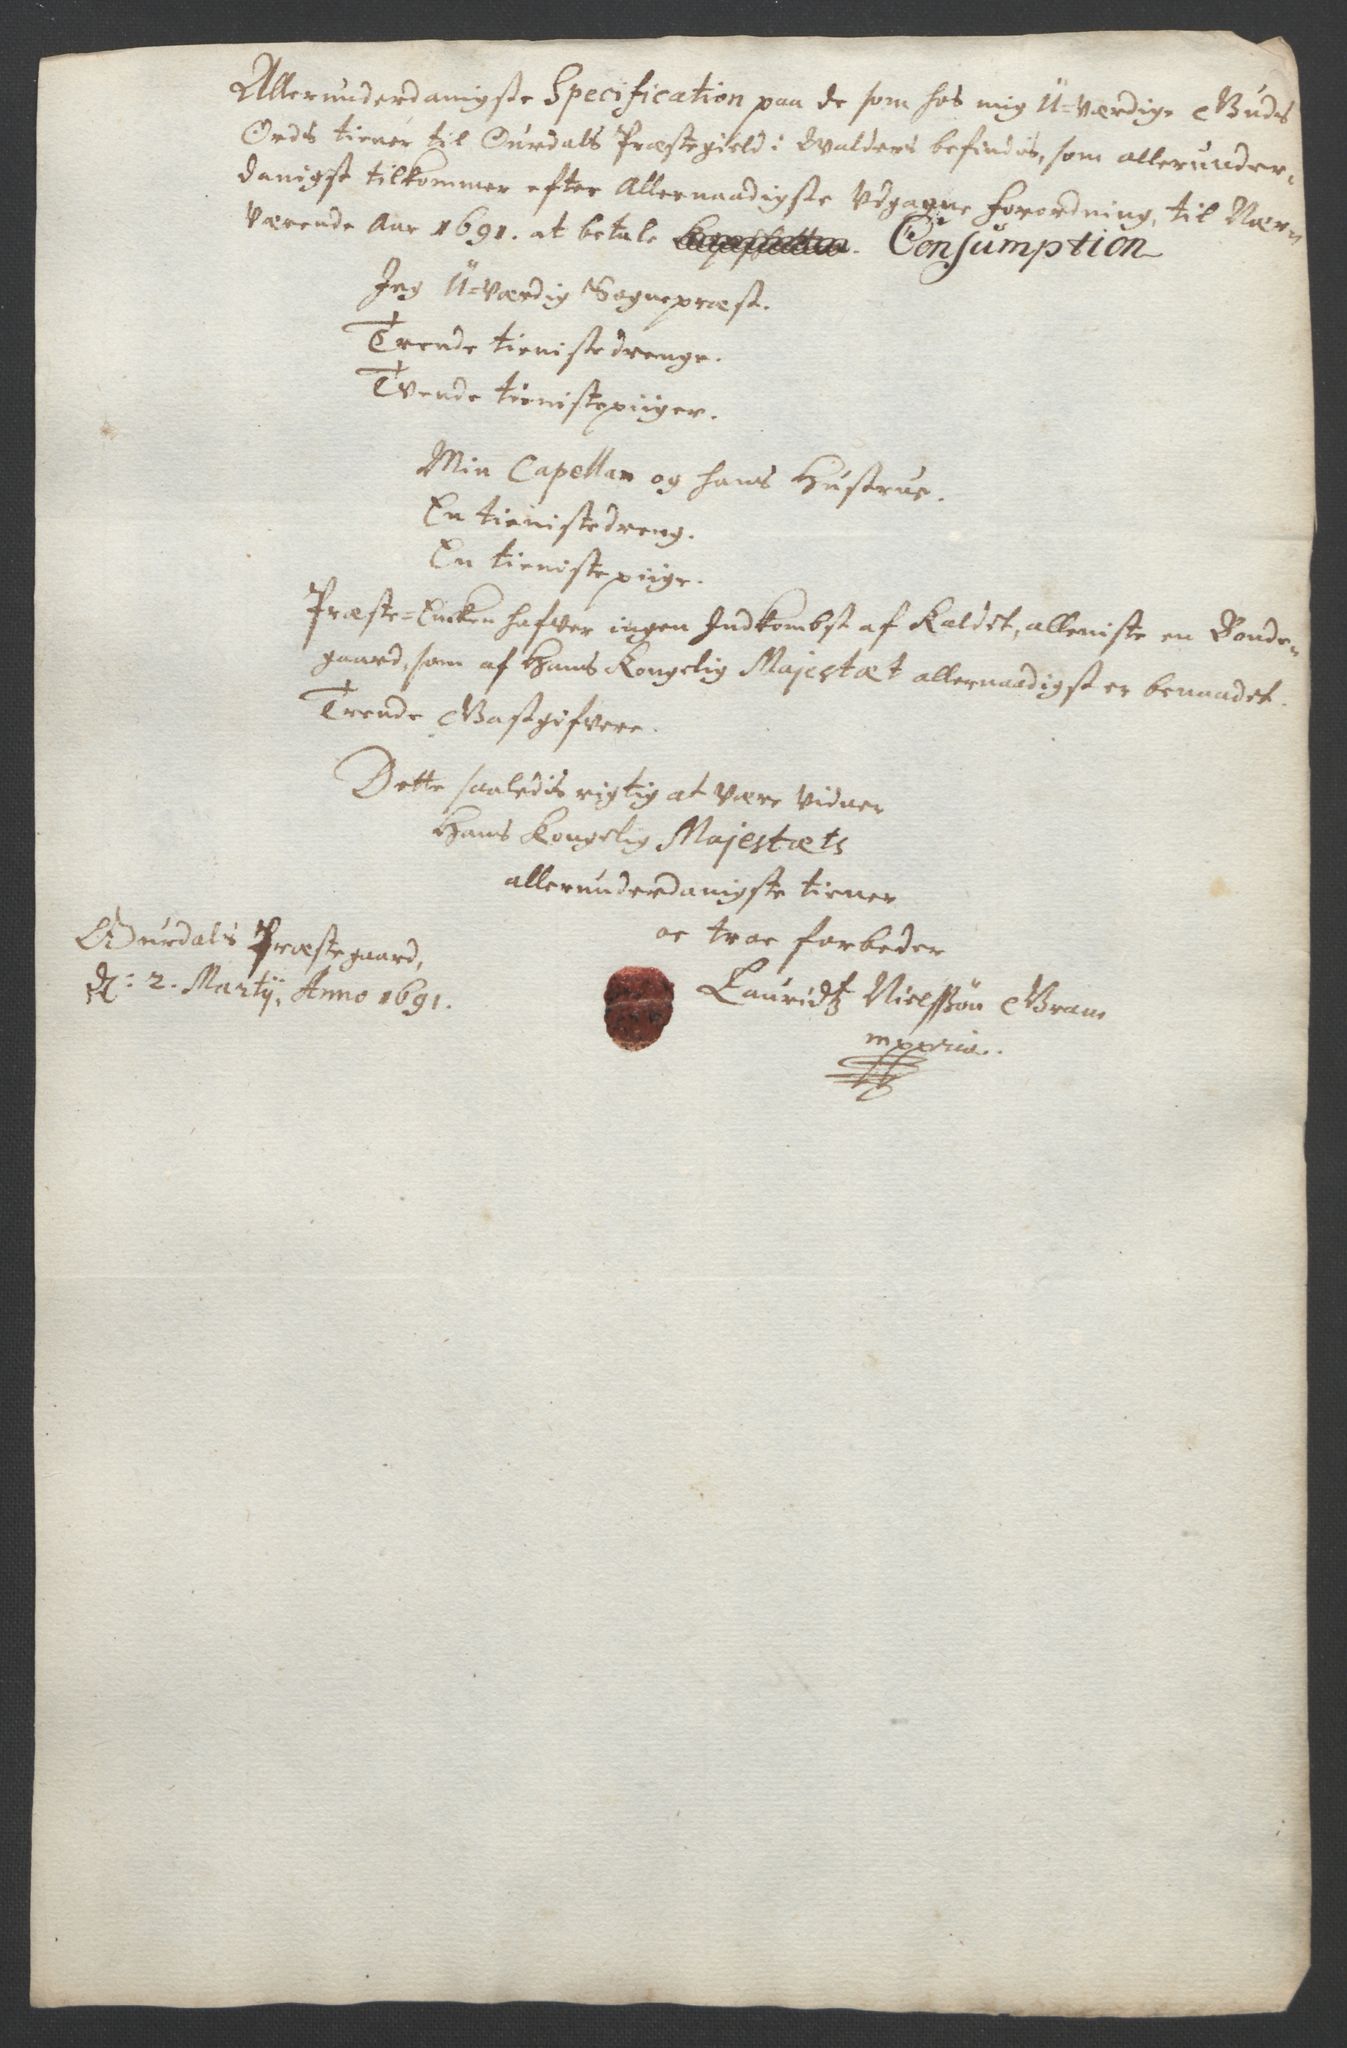 Allerunderdanigste Specification paa de som hos mig U=værdige Guds
Ords tiener til Ourdals Præstegield i Walders befindis, som allerunder=
danigst tilkommer efter Allernaadigste Udgagne forordning, til Nær=
værende Aar 1691. at betale Consumption
Jeg U=værdig Sognepræst.
Trende tienistedrenge.
Tvende tienistepiiger.
Min Capellan og hans Hustrue.
En tienistedreng.
En tienistepiige.
Præste=Encken hafver ingen Indkombst af Kaldet, alleniste en Bonde=
gaard, som af Hans Kongelig Majestæt allernaadigst er benaadet.
Trende Gastgifvere.
Dette saaledis rigtig at være vidner
Hans Kongelig Majestæts
allerunderdanigste tiener
oc troe forbeder
Ourdals Præstegaard,
d: 2. Martij, Anno 1691.
Lauridtz Nielssøn Gram
mppria.